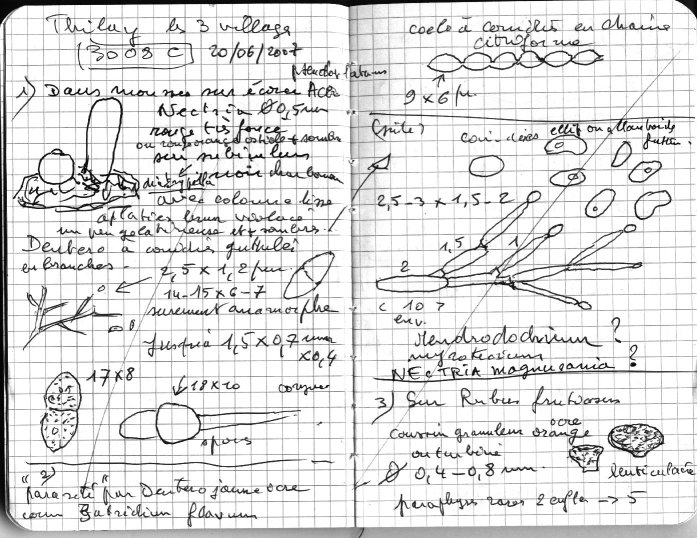 Thilay les 3 villages
3008 C 20/06/2007
pseudoplatanus
1) Dans mousses sur écorce Acer
Nectria Ø 0,5 mm
rouge très foncé
ou rouge orange ostiole + sombre
sur subiculum
noir charbonneux
diatrypella
avec colonne lisse
aplaties brun violacé
un peu gélatineuse et + sombre
Deutero à conidies guttulées
en branches.
2,5 x 1,2 µm.
14-15 x 6-7
surement anamorphe
Jusqu'à 1,5 x 0,7 mm
x 0,4
17 x 8
18 x 10
spores
2)
"parasité" par Deutero jaune ocre
flavum
coelo à conidies en chaine
citriforme
9 x 6 µ.
(suite)
conidies ellip ou allantoïdes
2,5-3 x 1,5-2
1,5
1
2
< 10 >
env.
Dendrodochium ?
myrothecium
NECTRIA magnusiana ?
3) Sur Rubus fruticosus
ocre
coussin granuleux orange
ou turbiné
Ø 0,4-0,8 mm.
lenticulaire
paraphyses rares 2 enfla -> 5